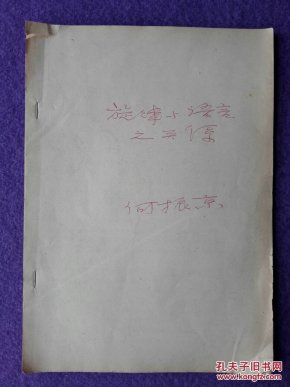 旋律与语言
之关系
何振京
孔夫子旧书网